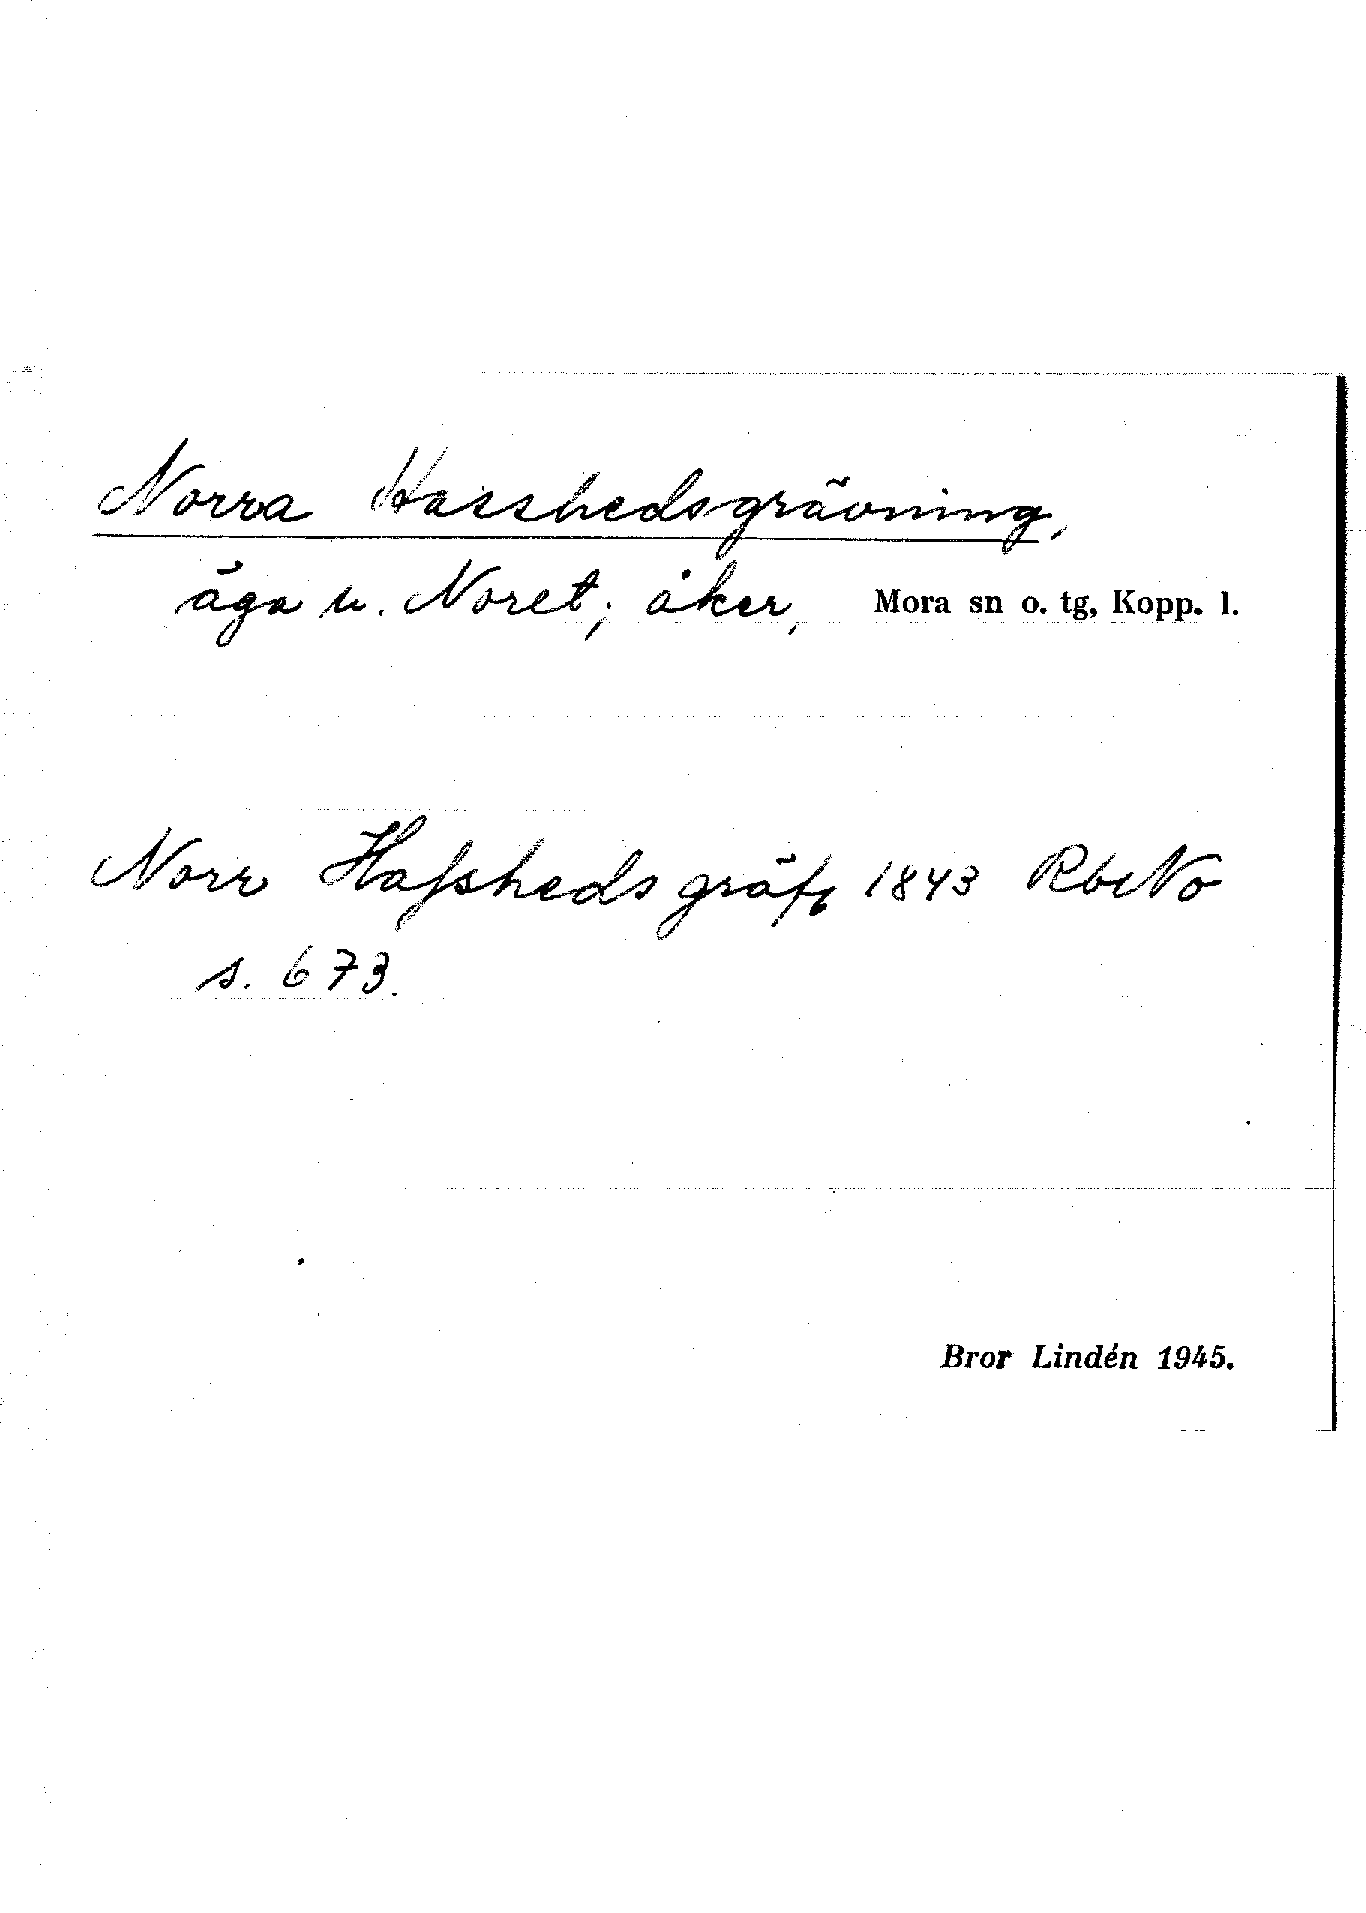 Norra Hasshedsgrävning,
äga u. Noret; åker, Mora sn o. tg, Kopp. l.
Norr Hafsheds gräfn 1843 RbNo
s. 673.
Bror Lindén 1945.